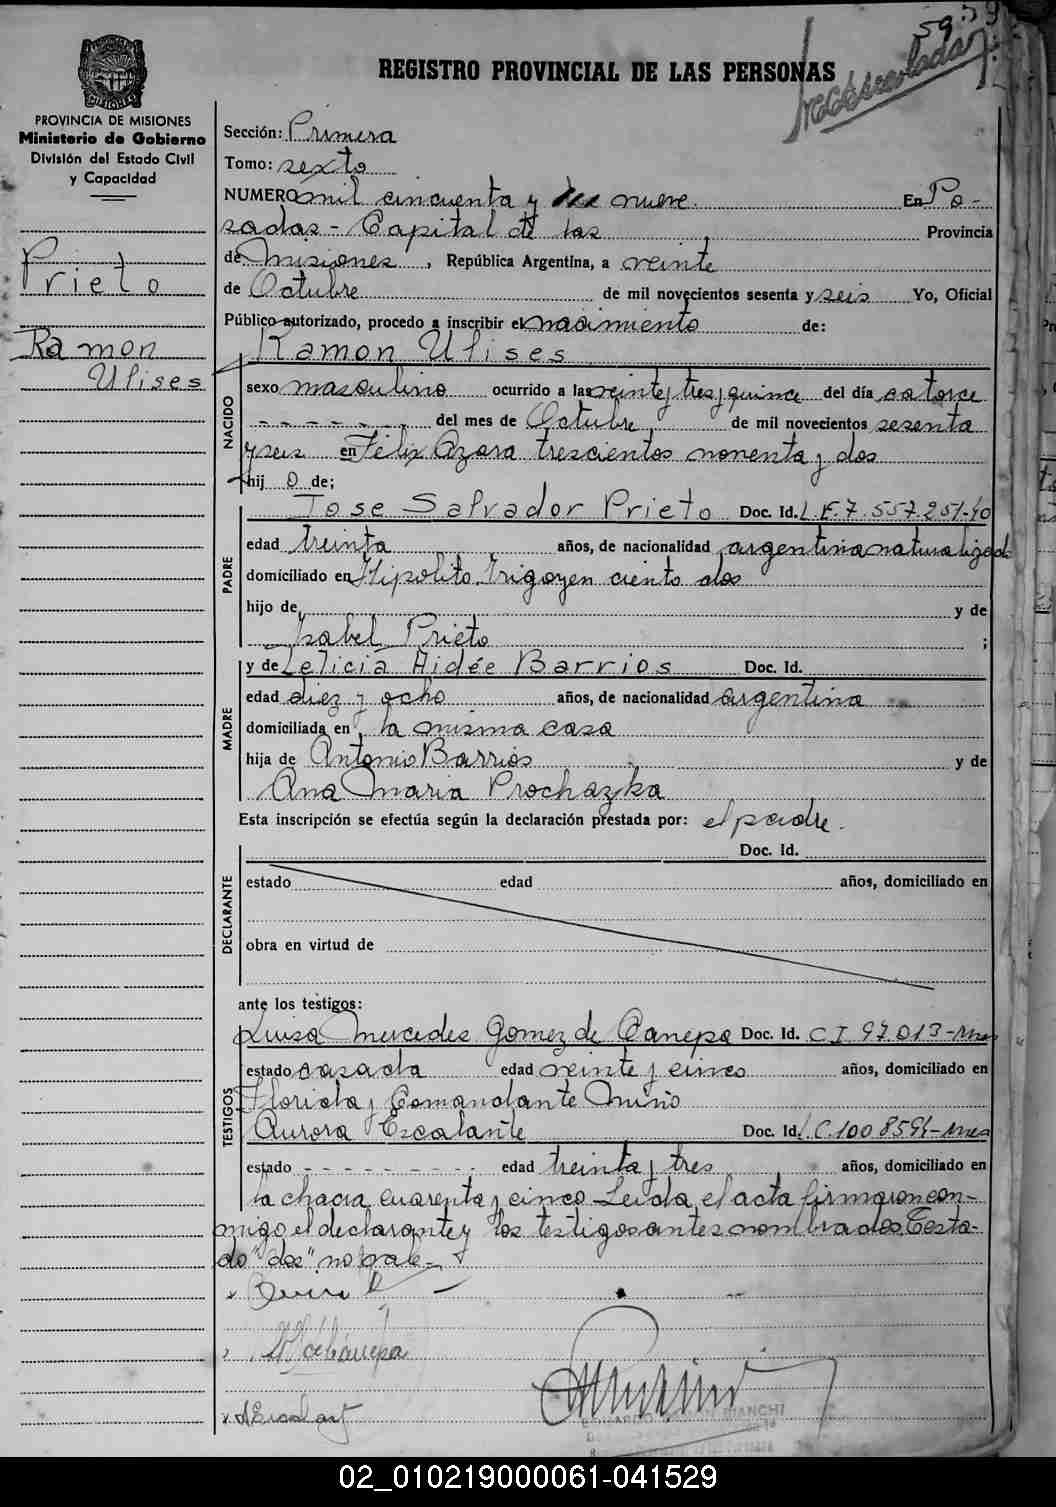 59
REGISTRO PROVINCIAL DE LAS PERSONAS
PROVINCIA DE MISIONES
Ministerio de Gobierno
División del Estado Civil
y Capacidad
Prieto
Ramon
Ulises
Sección: Primera
Tomo: sexto
NUMERO mil cincuenta y nueve. En Po-
sadas - Capital de las Provincia
de Misiones, República Argentina, a veinte
de Octubre de mil novecientos sesenta y seis Yo, Oficial
Público autorizado, procedo a inscribir el nacimiento de:
NACIDO
Ramon Ulises
sexo masculino ocurrido a las veinte y tres y quince del día catorce
- - - - - - - del mes de Octubre de mil novecientos sesenta
y seis en Félix Azara trescientos noventa y dos
hij o de;
PADRE
Jose Salvador Prieto Doc. Id. L.E.7.557.251-40
edad treinta años, de nacionalidad argentina naturalizado
domiciliado en Hipolito Irigoyen ciento dos
hijo de, y de
Isabel Prieto ;
MADRE
y de Leticia Aidée Barrios Doc. Id.
edad diez y ocho años, de nacionalidad argentina
domiciliada en la misma casa
hija de Antonio Barrios y de
Ana Maria Prochazka
Esta inscripción se efectúa según la declaración prestada por: el padre.
DECLARANTE
Doc. Id.
estado edad años, domiciliado en
obra en virtud de
ante los testigos:
TESTIGOS
Luisa Mercedes Gomez de Canepa Doc. Id. C I 97.013-Mnes
estado casada edad veinte y cinco años, domiciliado en
Florida y Comandante Miño
Aurora Escalante Doc. Id. L.C.100 859-Mnes
estado - - - - - - - - edad treinta y tres años, domiciliado en
la chacra cuarenta y cinco - Leida el acta firmaron con-
migo el declarante y los testigos antes nombrados. Testa-
do "dos" no vale -
BIANCHI
02_010219000061-041529